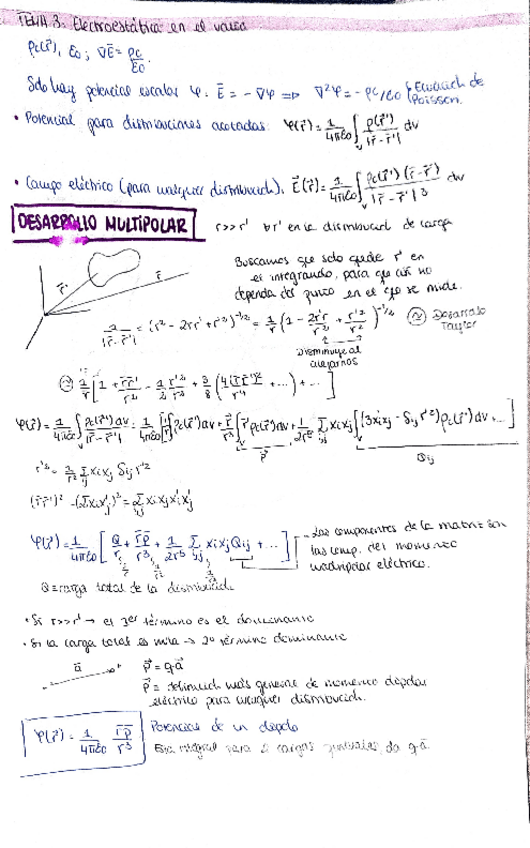 TEMA 3: Electroestática en el vacío
ρc(r⃗), ε0 ; ∇E̅ = ρc/ε0.
Solo hay potencial escalar φ. E̅ = -∇φ ⟹ ∇²φ = -ρc/ε0 {Ecuación de Poisson.
• Potencial para distribuciones acotadas: φ(r⃗) = 1/4πε0 ∫v ρ(r⃗')/|r̅ - r̅'| dv
• Campo eléctrico (para cualquier distribució). E⃗(r⃗) = 1/4πε0 ∫v ρc(r⃗')(r̅ - r̅')/|r̅ - r̅'|³ dv
DESARROLLO MULTIPOLAR
r>>r' ∀r' en la distribució de carga
Buscamos que solo quede r' en
el integrando, para que así no
dependa del punto en el que se mide.
1/|r̅ - r̅'| = (r² - 2rr' + r'²)^-1/2 = 1/r (1 - 2r'r/r² + r'²/r²)^-1/2 ≈ Desarrollo Taylor
Disminuye al
alejarnos
≈ 1/r [1 + r̅r̅'/r² - 1/2 r'²/r² + 3/8 (4(r̅r̅')²/r⁴ + ...) + ...]
φ(r̅) = 1/4πε0 ∫ ρc(r̅')dv/|r̅ - r̅'| = 1/4πε0 [1/r ∫ρc(r')dv + r̅/r³ ∫r̅'ρc(r')dv + 1/2r⁵ Σij xixj ∫(3x'ix'j - δij r'²)ρc(r')dv + ...]
p̅ Qij
r'² = 1/r² Σij xixj δij r'²
(r̅r̅')² = (Σxix'i)² = Σij xixjx'ix'j
φ(r̅) = 1/4πε0 [Q/r + r̅p̅/r³ + 1/2r⁵ Σij xixjQij + ...]
- Las componentes de la matriz son
las comp. del momento
cuadripolar eléctrico.
Q = carga total de la distribució
• Si r>>r' → el 1er término es el dominante
• Si la carga total es nula → 2º término dominante
a̅
p⃗ = qa̅
p⃗ = definició más general de momento dipolar
eléctrico para cualquier distribució.
φ(r⃗) = 1/4πε0 r̅p̅/r³
Potencial de un dipolo
Esa integral para 2 cargas puntuales da qa̅